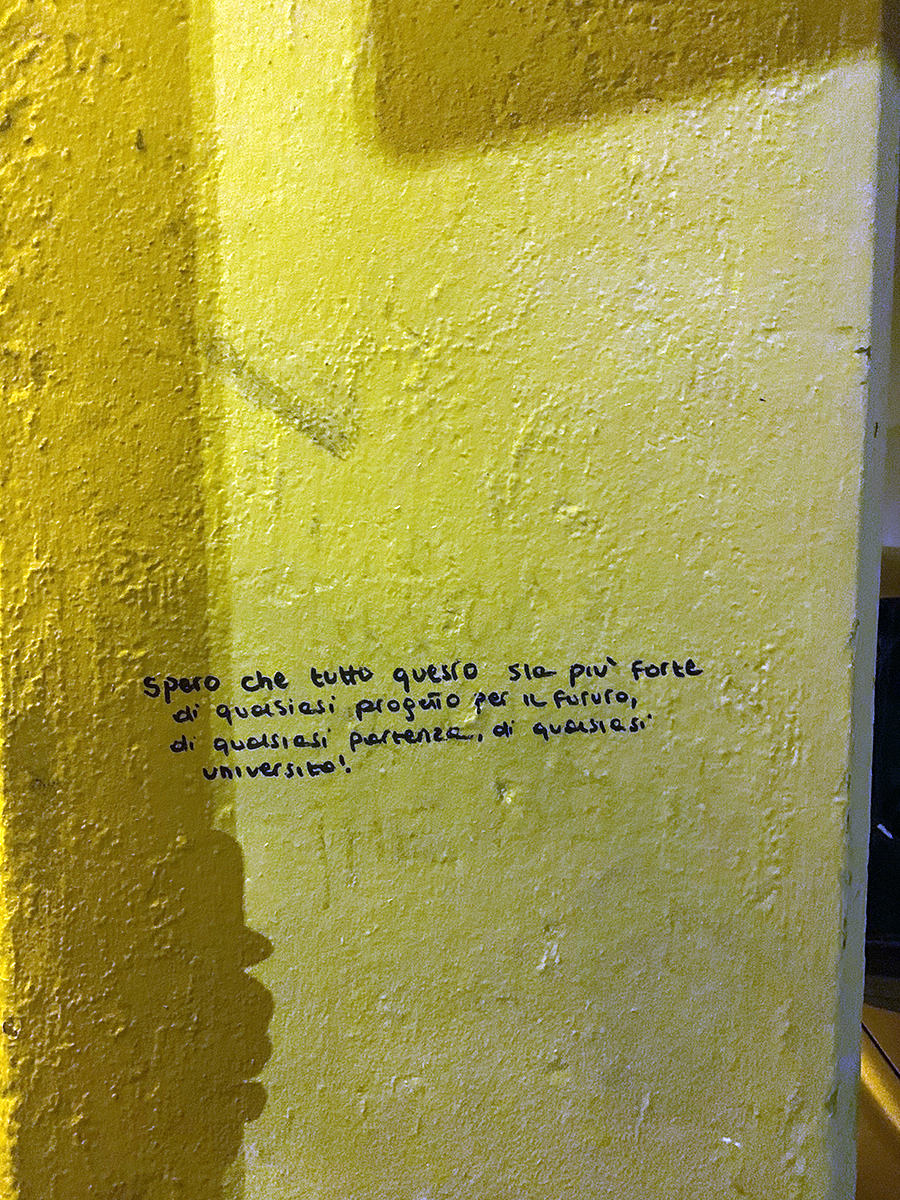 Spero che tutto questo sia più forte
di qualsiasi progetto per il futuro,
di qualsiasi partenza, di qualsiasi
università!